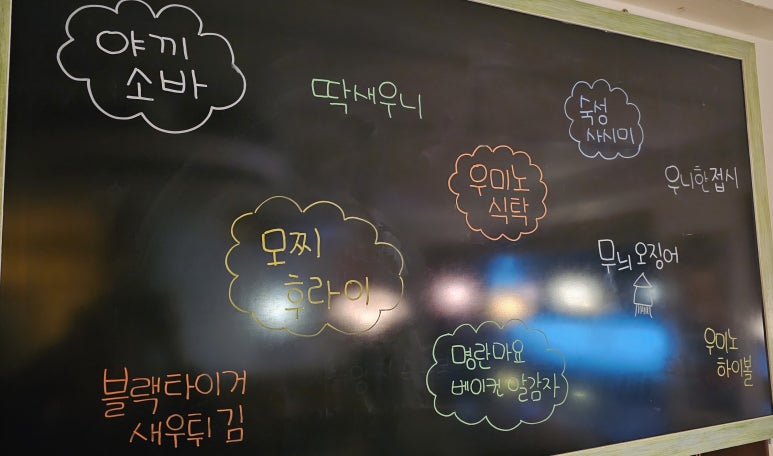 야끼
소바
딱새우니
숙성
사시미
우미노
식탁
우니한접시
모찌
후라이
무늬오징어
명란마요
베이컨알감자
우미노
하이볼
블랙타이거
새우튀김